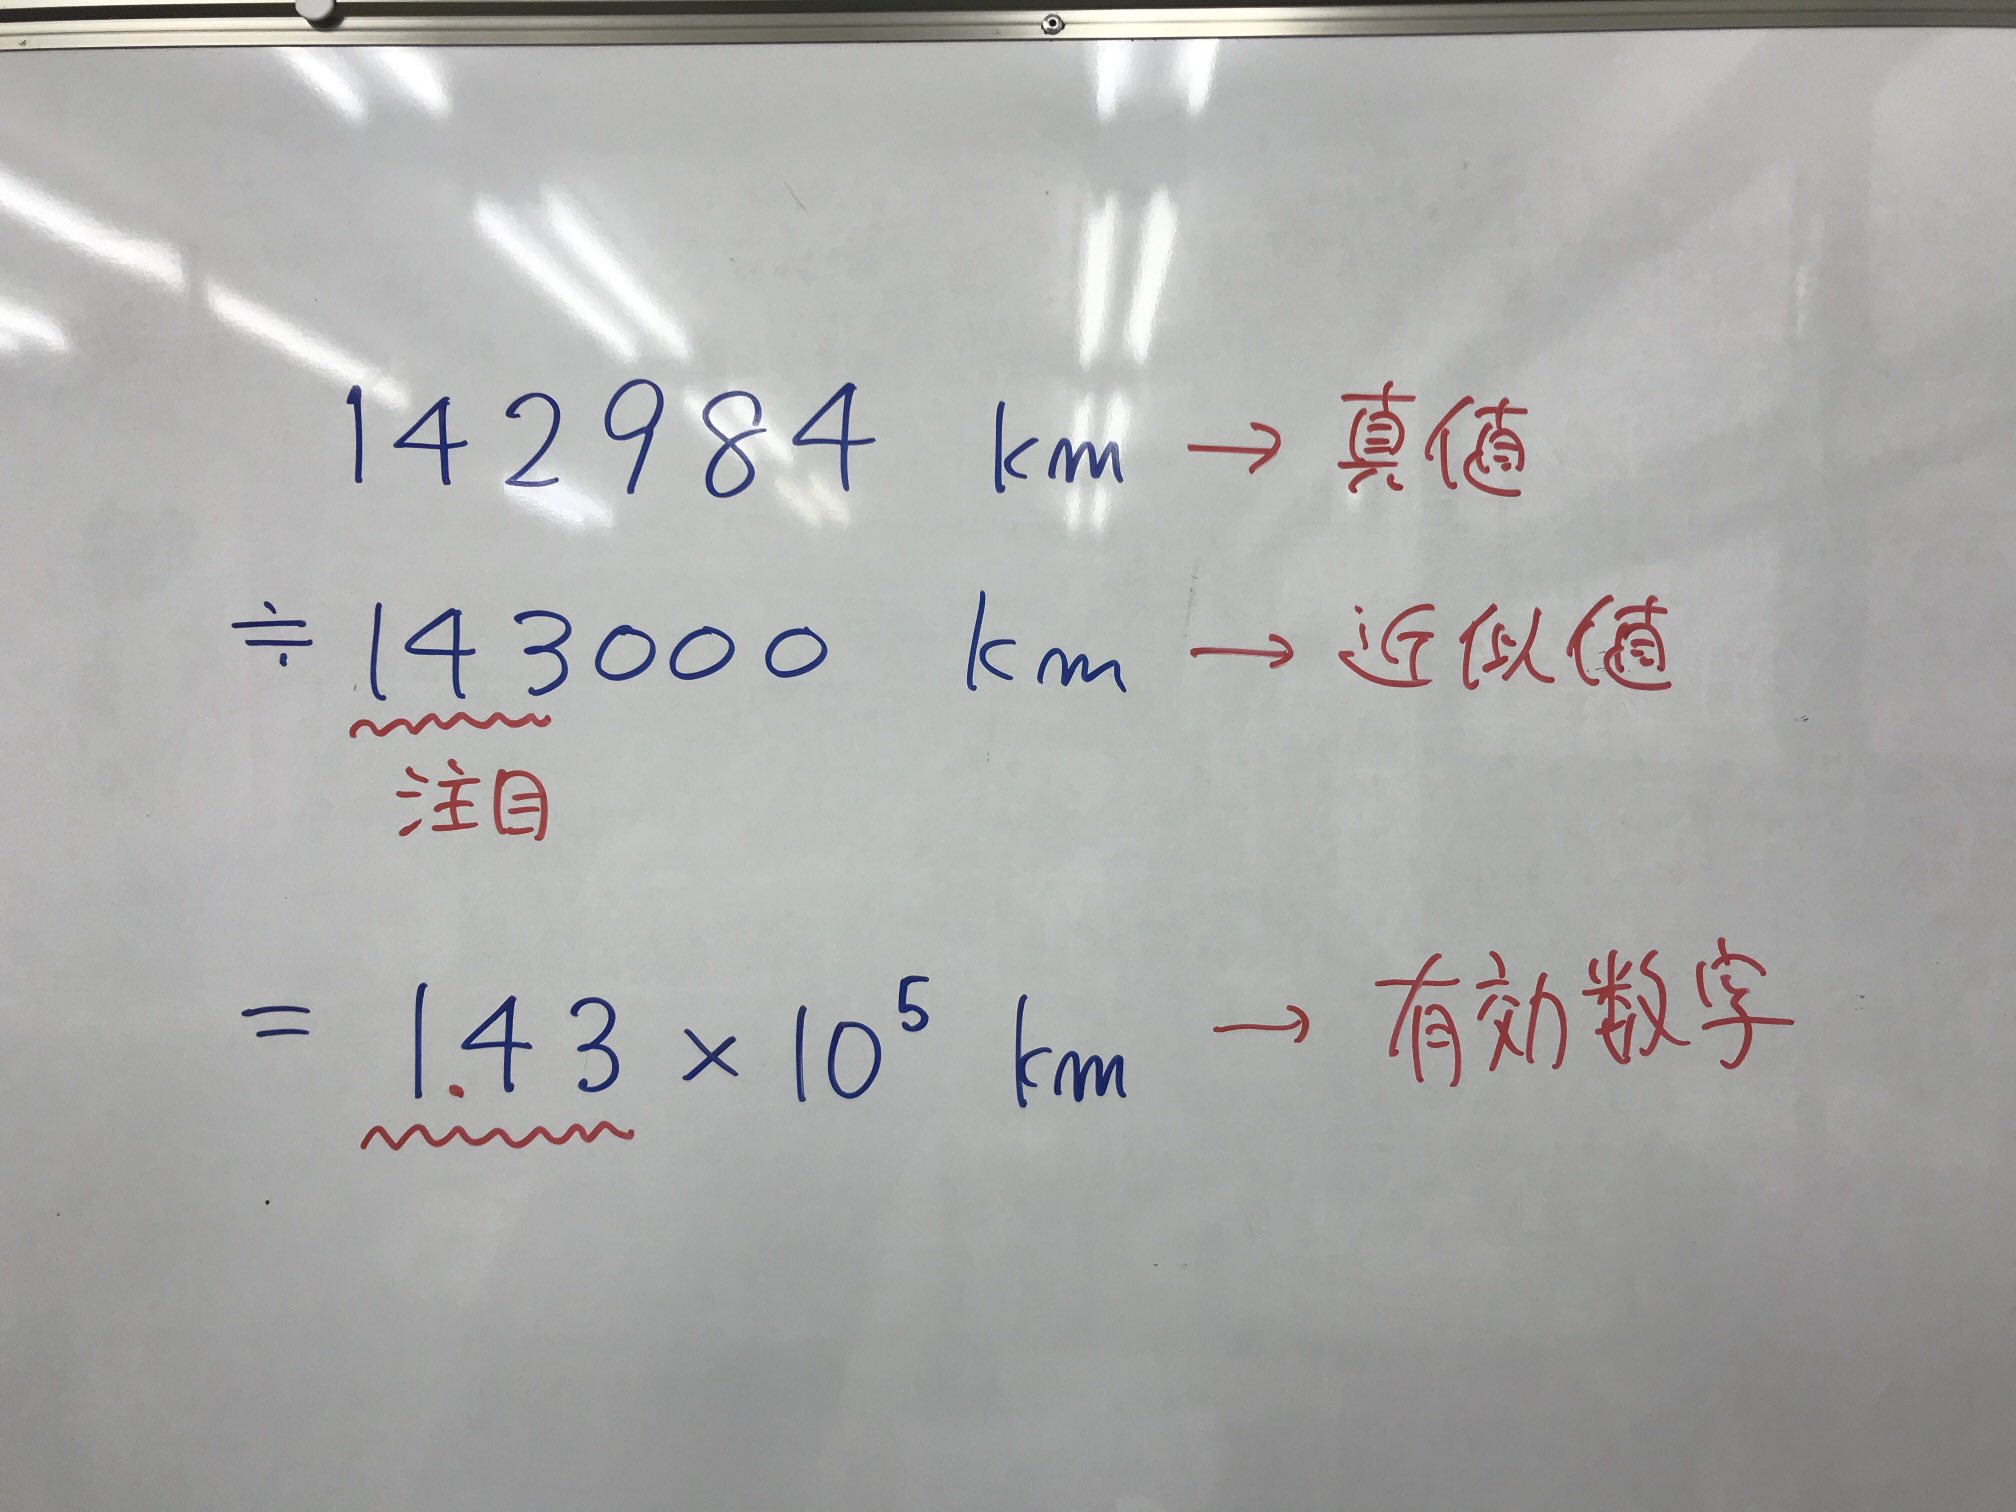 142984 km → 真値
≒ 143000 km → 近似値
注目
= 1.43 × 10⁵ km → 有効数字